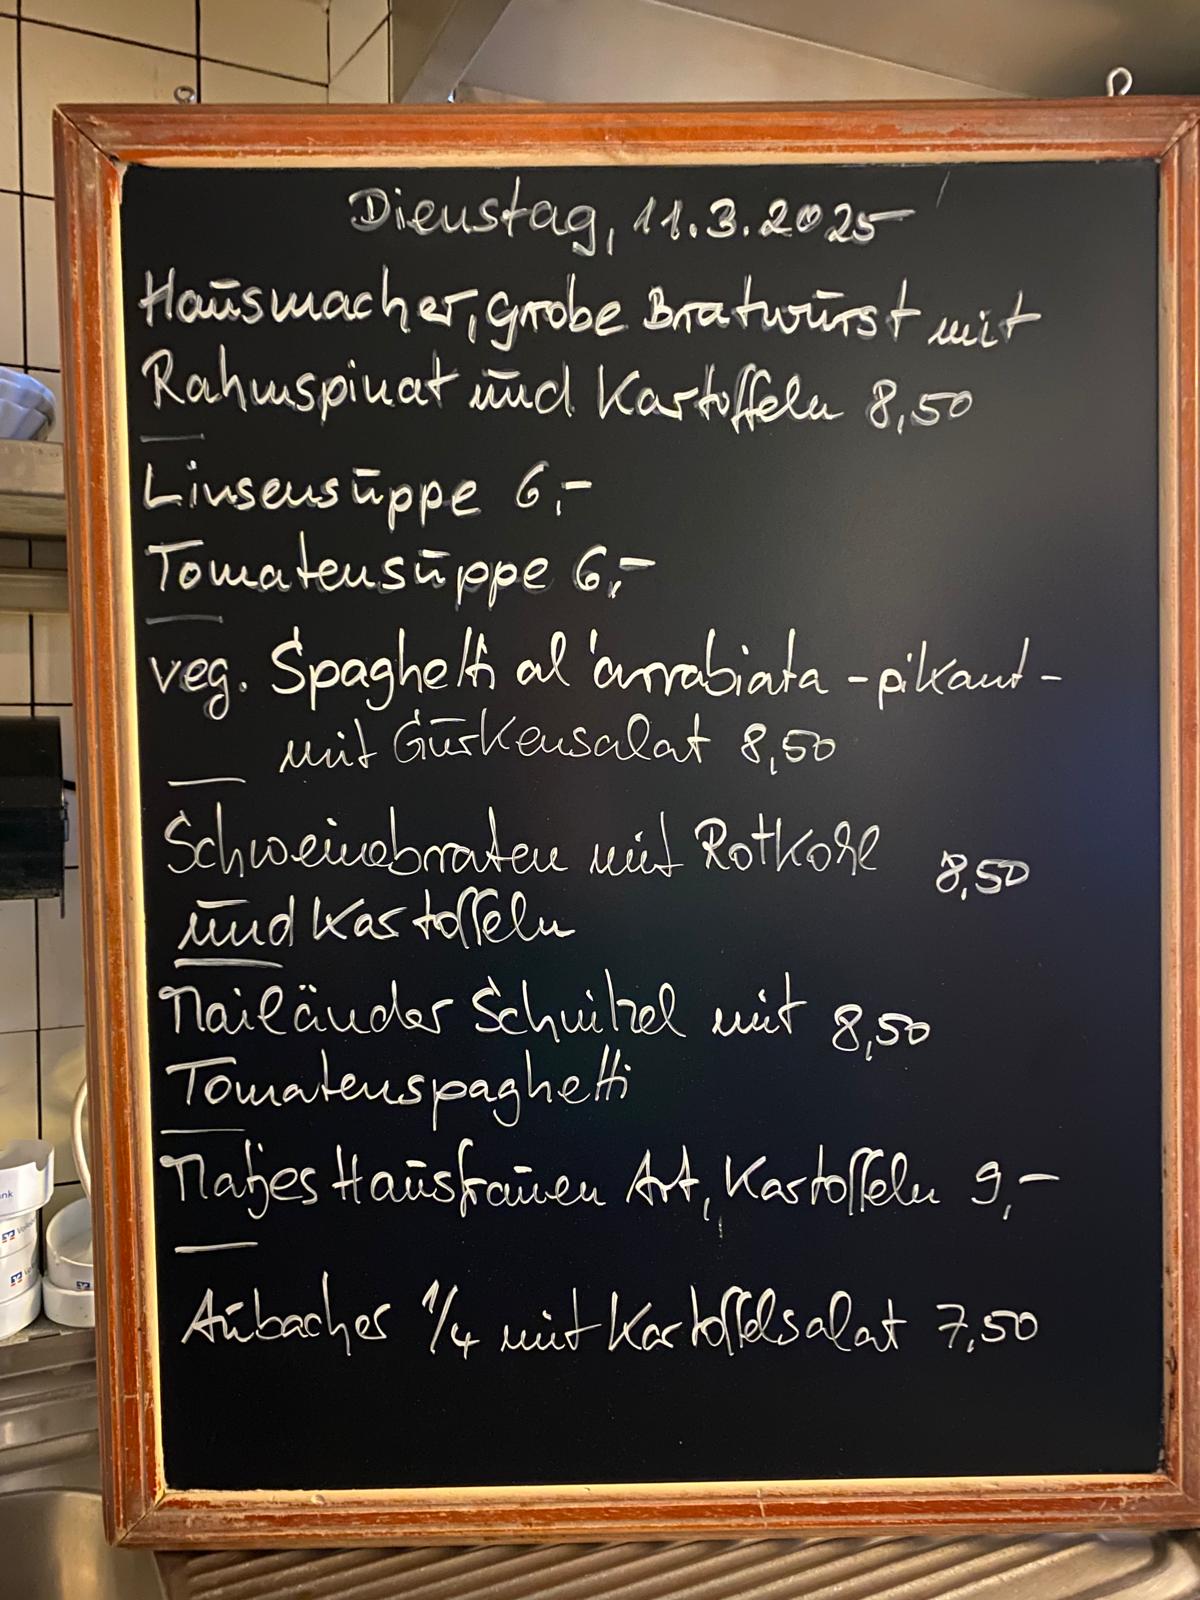 Dienstag, 11.3.2025
Hausmacher, grobe Bratwurst mit
Rahmspinat und Kartoffeln 8,50
Linsensuppe 6,-
Tomatensuppe 6,-
veg. Spaghetti al'arrabiata - pikant -
mit Gurkensalat 8,50
Schweinebraten mit Rotkohl 8,50
und Kartoffeln
Mailänder Schnitzel mit 8,50
Tomatenspaghetti
Matjes Hausfrauen Art, Kartoffeln 9,-
Aubacher 1/4 mit Kartoffelsalat 7,50